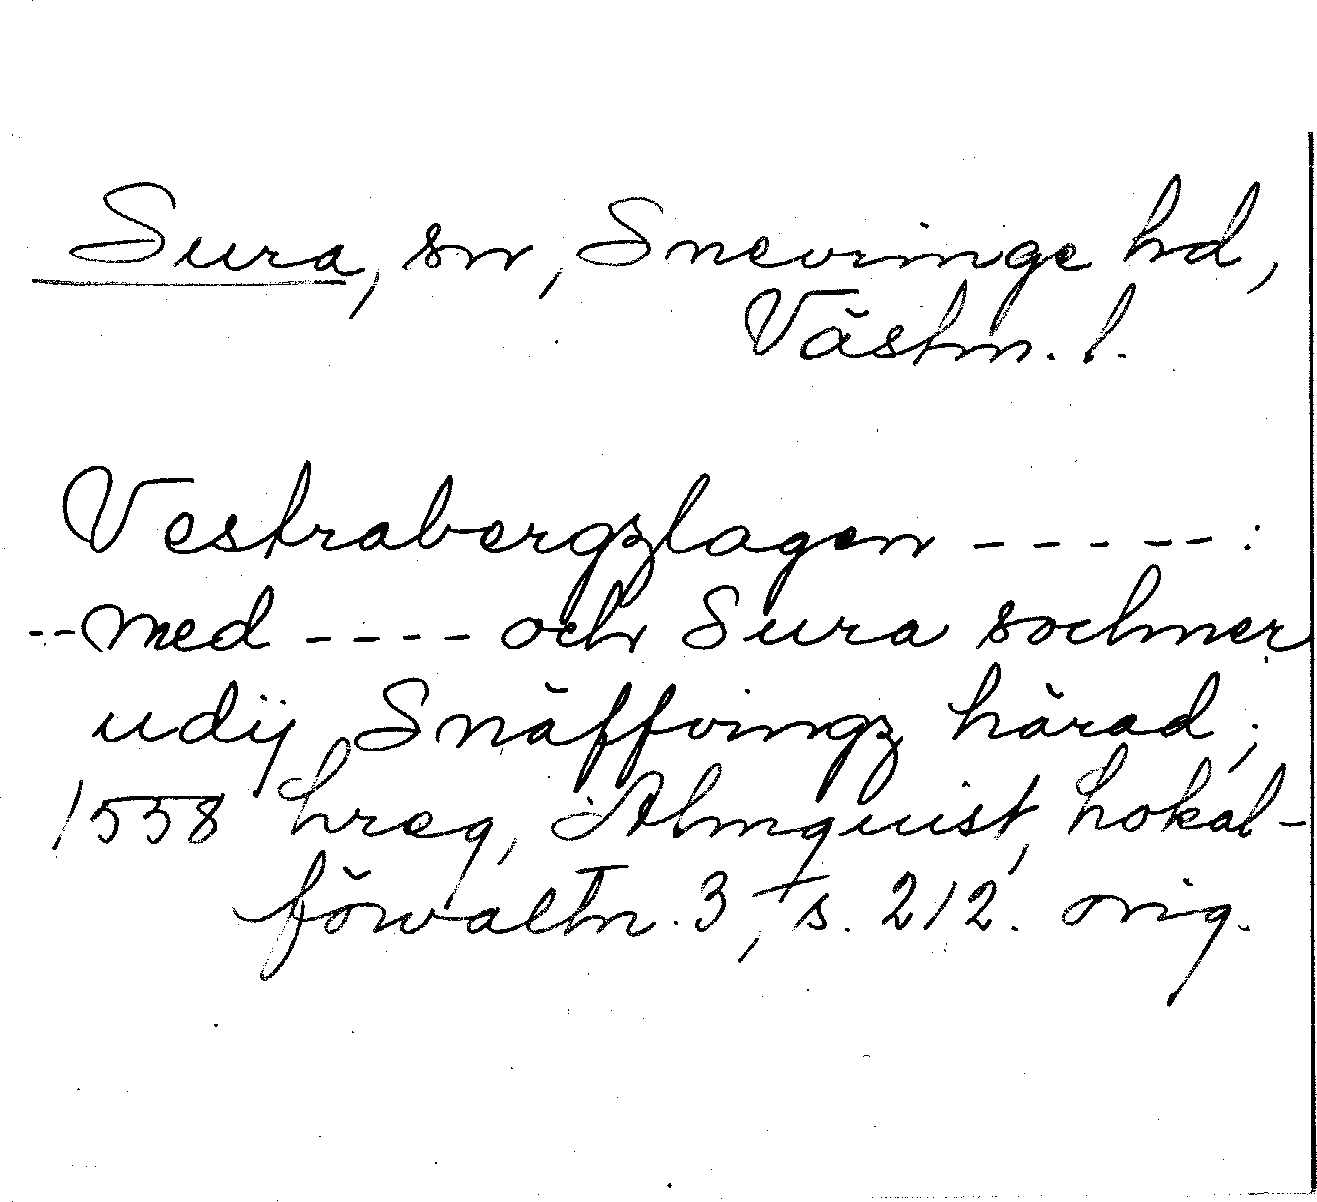 Sura, sn, Snevringe hd,
Västm. l.
Vestrabergzlagen - - - - - :
-- med - - - - och Sura sochner
udij Snäffringz härad;
1558 hreg, Almquist, Lokal-
förvaltn. 3, s. 212. orig.